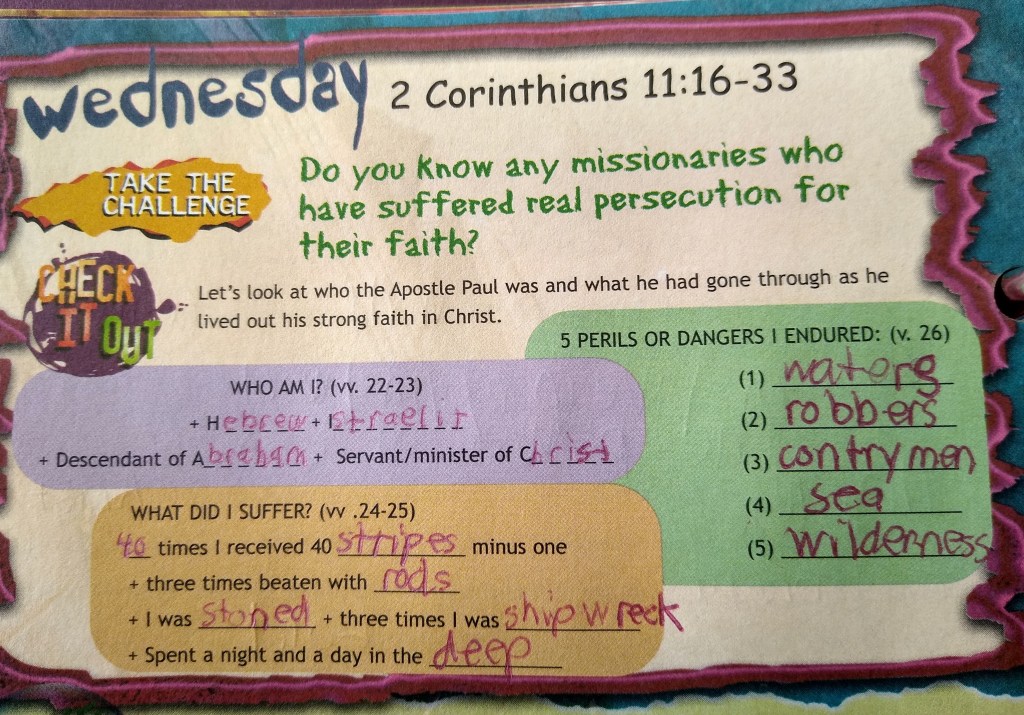 wednesday 2 Corinthians 11:16-33
TAKE THE
CHALLENGE
Do you know any missionaries who
have suffered real persecution for
their faith?
CHECK
IT
OUT
Let's look at who the Apostle Paul was and what he had gone through as he
lived out his strong faith in Christ.
WHO AM I? (vv. 22-23)
+ Hebrew + Istraelit
+ Descendant of Abraham + Servant/minister of Christ
WHAT DID I SUFFER? (vv .24-25)
40 times I received 40 stripes minus one
+ three times beaten with rods
+ I was stoned + three times I was shipwreck
+ Spent a night and a day in the deep
5 PERILS OR DANGERS I ENDURED: (v. 26)
(1) waters
(2) robbers
(3) contrymen
(4) sea
(5) wilderness